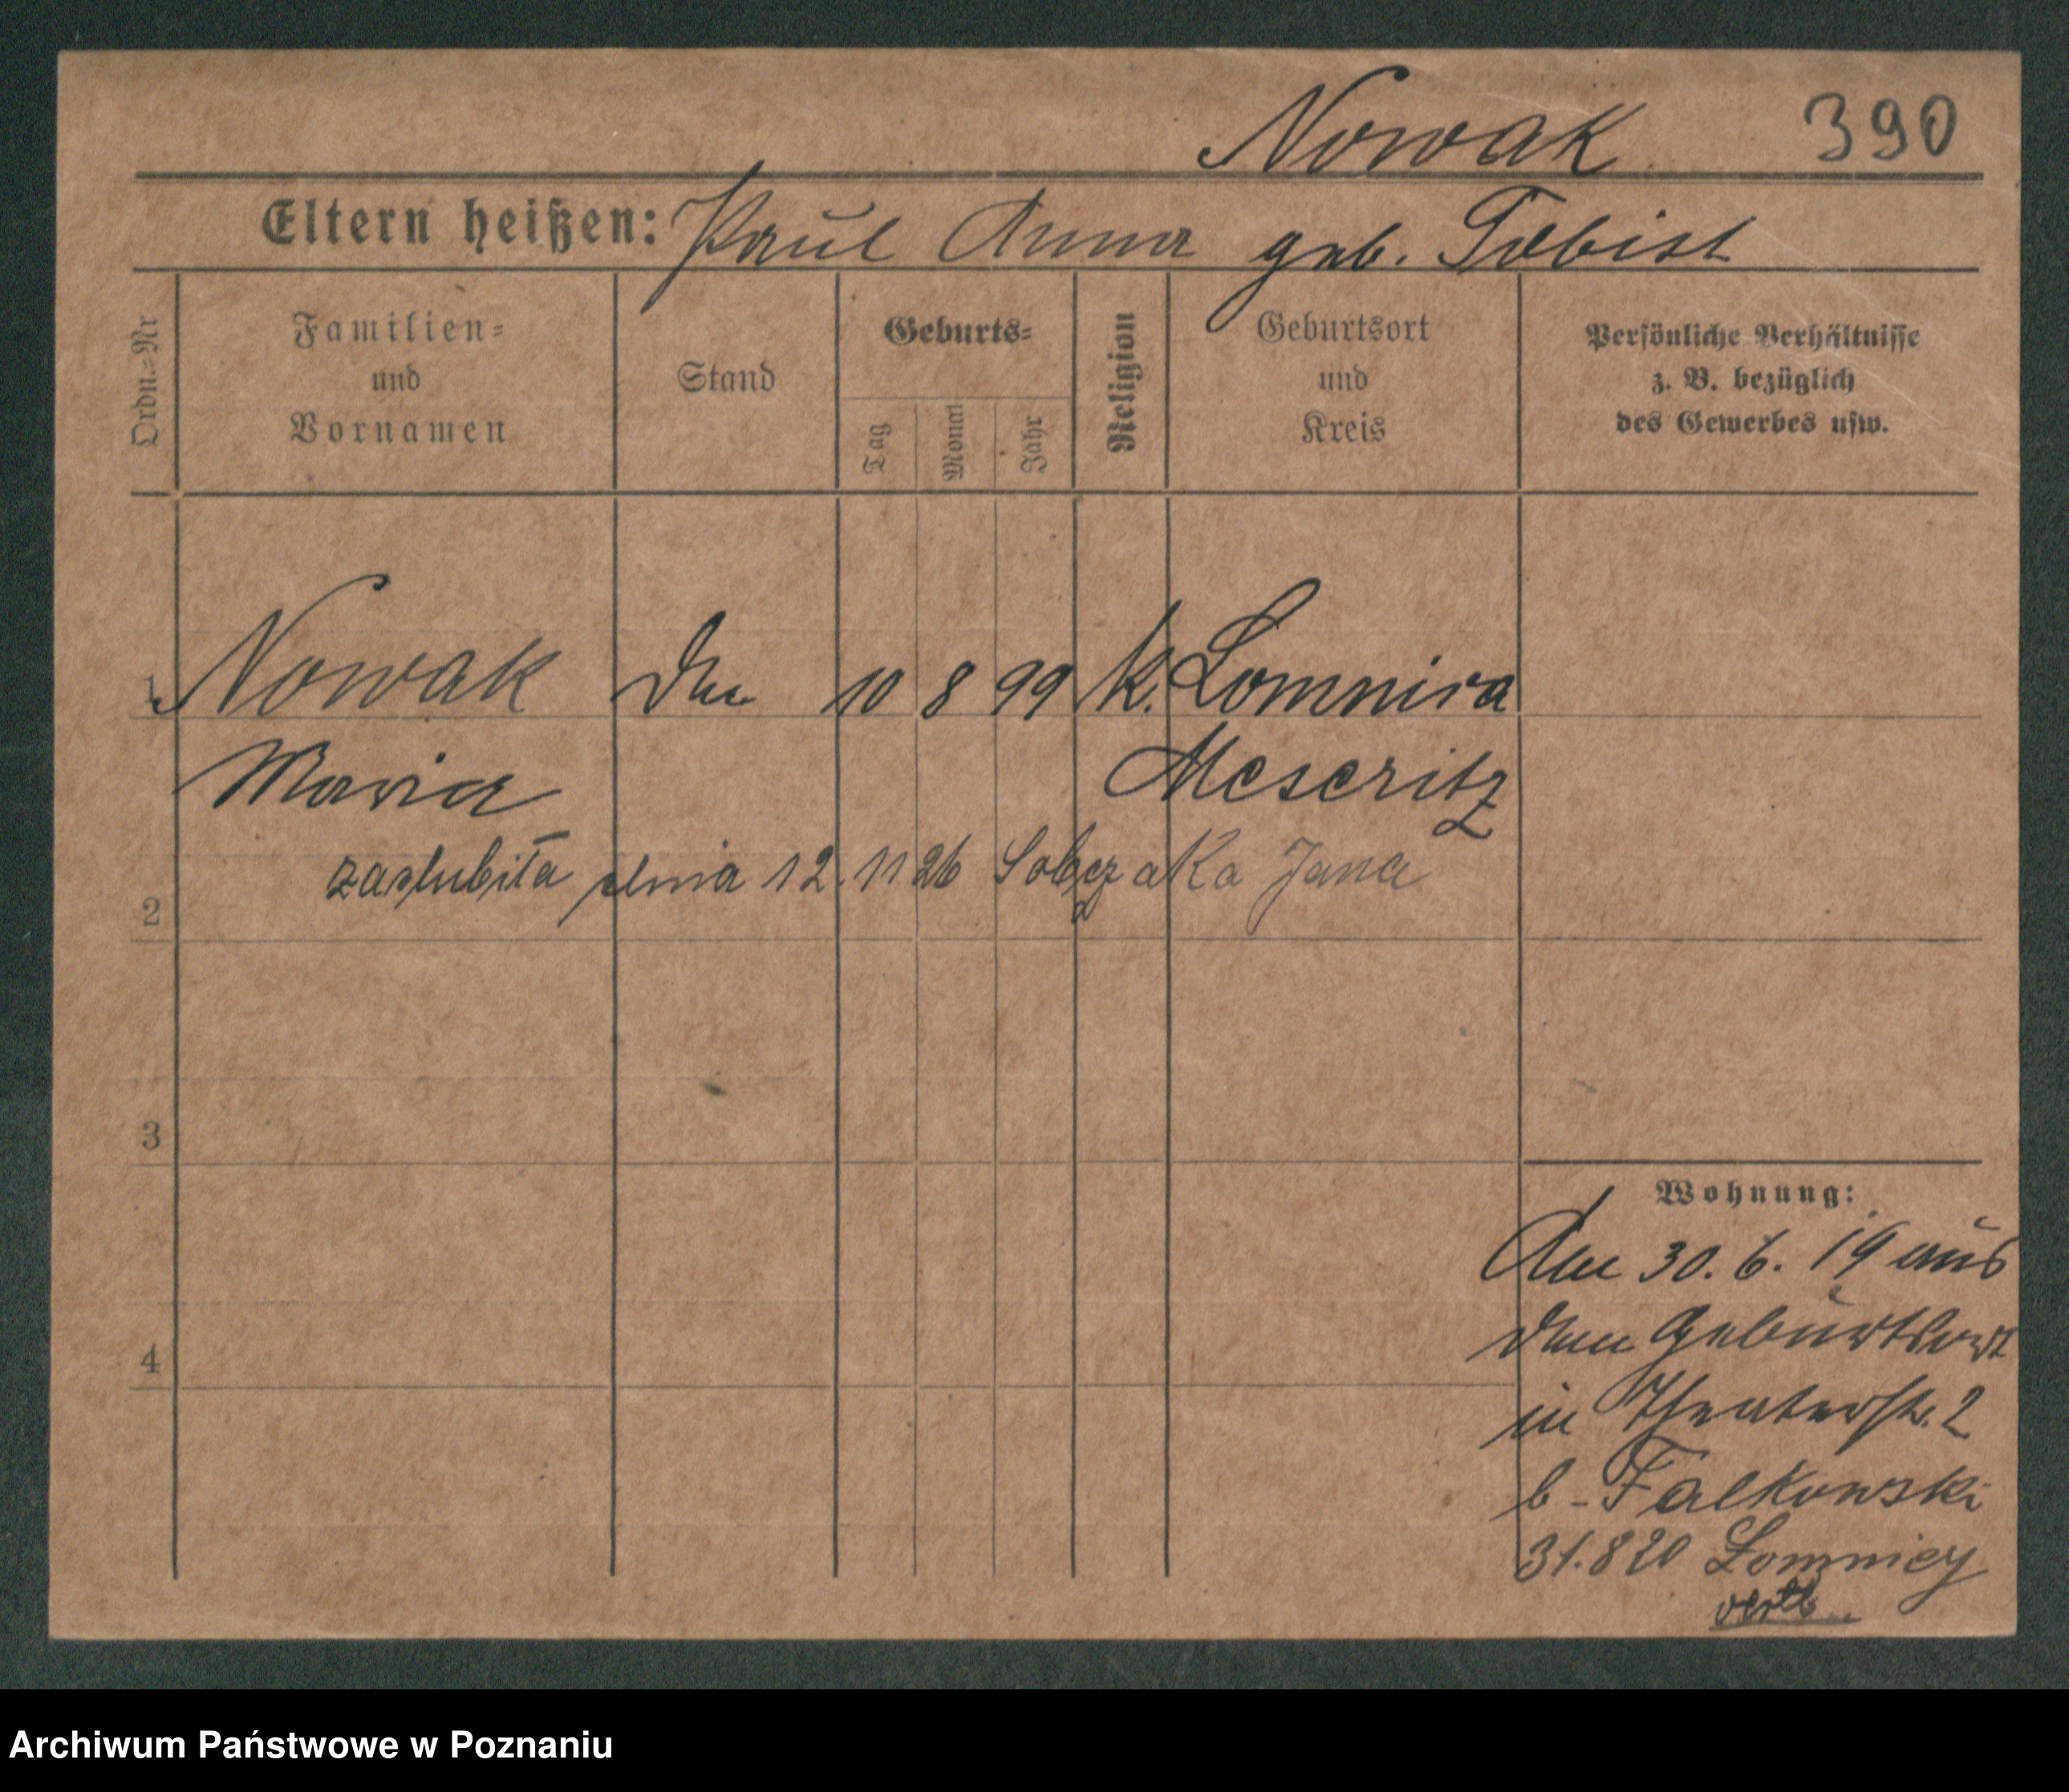 Nowak 390
Eltern heißen: Paul Anna geb. Tobist
Ordn.-Nr
Familien- und Vornamen
Stand
Geburts-
Tag
Monat
Jahr
Religion
Geburtsort und Kreis
Persönliche Verhältnisse z. B. bezüglich des Gewerbes usw.
1 Nowak 10 8 99 K. Lomnica
Maria Meseritz
zaślubiła dnia 12.11 26 Sobczaka Jana
2
3
4
Wohnung:
Am 30. 6. 19 aus
dem Geburtsort
in Theaterstr. 2
b - Falkowski
31.8 20 Lomnicy
Archiwum Państwowe w Poznaniu